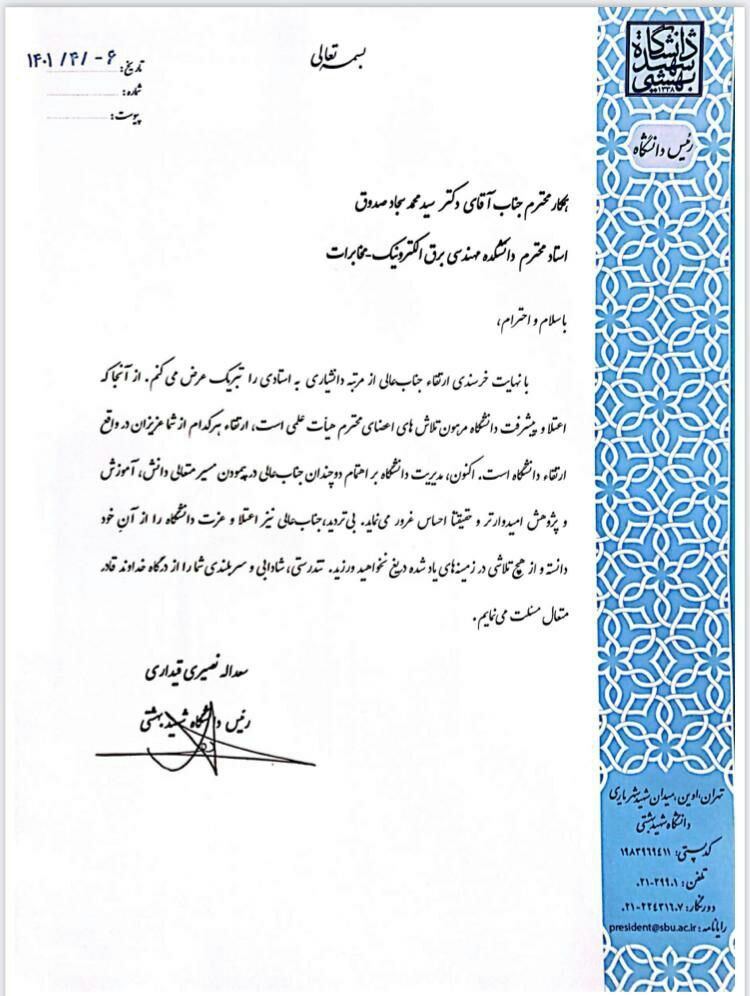 بسمه تعالی
تاریخ: ۱۴۰۱/۴/۰۶
شماره:
پیوست:
دانشگاه
شهید
بهشتی
۱۳۳۸
رئیس دانشگاه
همکار محترم جناب آقای دکتر سید محمد سجاد صدوق
استاد محترم دانشکده مهندسی برق الکترونیک-مخابرات
با سلام و احترام،
با نهایت خرسندی ارتقاء جناب‌عالی از مرتبه دانشیاری به استادی را تبریک عرض می کنم. از آنجا که
اعتلا و پیشرفت دانشگاه مرهون تلاش های اعضای محترم هیأت علمی است، ارتقاء هرکدام از شما عزیزان در واقع
ارتقاء دانشگاه است. اکنون، مدیریت دانشگاه بر اهتمام دوچندان جناب‌عالی در پیمودن مسیر متعالی دانش، آموزش
و پژوهش امیدوارتر و حقیقتا احساس غرور می‌نماید. بی‌تردید، جناب‌عالی نیز اعتلا و عزت دانشگاه را از آنِ خود
دانسته و از هیچ تلاشی در زمینه‌های یاد شده دریغ نخواهید ورزید. تندرستی، شادابی و سربلندی شما را از درگاه خداوند قادر
متعال مسئلت می‌نمایم.
سعداله نصیری قیداری
رئیس دانشگاه شهید بهشتی
تهران، اوین، میدان شهید شهریاری
دانشگاه شهید بهشتی
کد پستی: ۱۹۸۳۹۶۹۴۱۱
تلفن: ۰۲۱-۲۹۹۰۱
دورنگار: ۰۲۱-۲۲۴۳۱۶۰۷
رایانامه: president@sbu.ac.ir